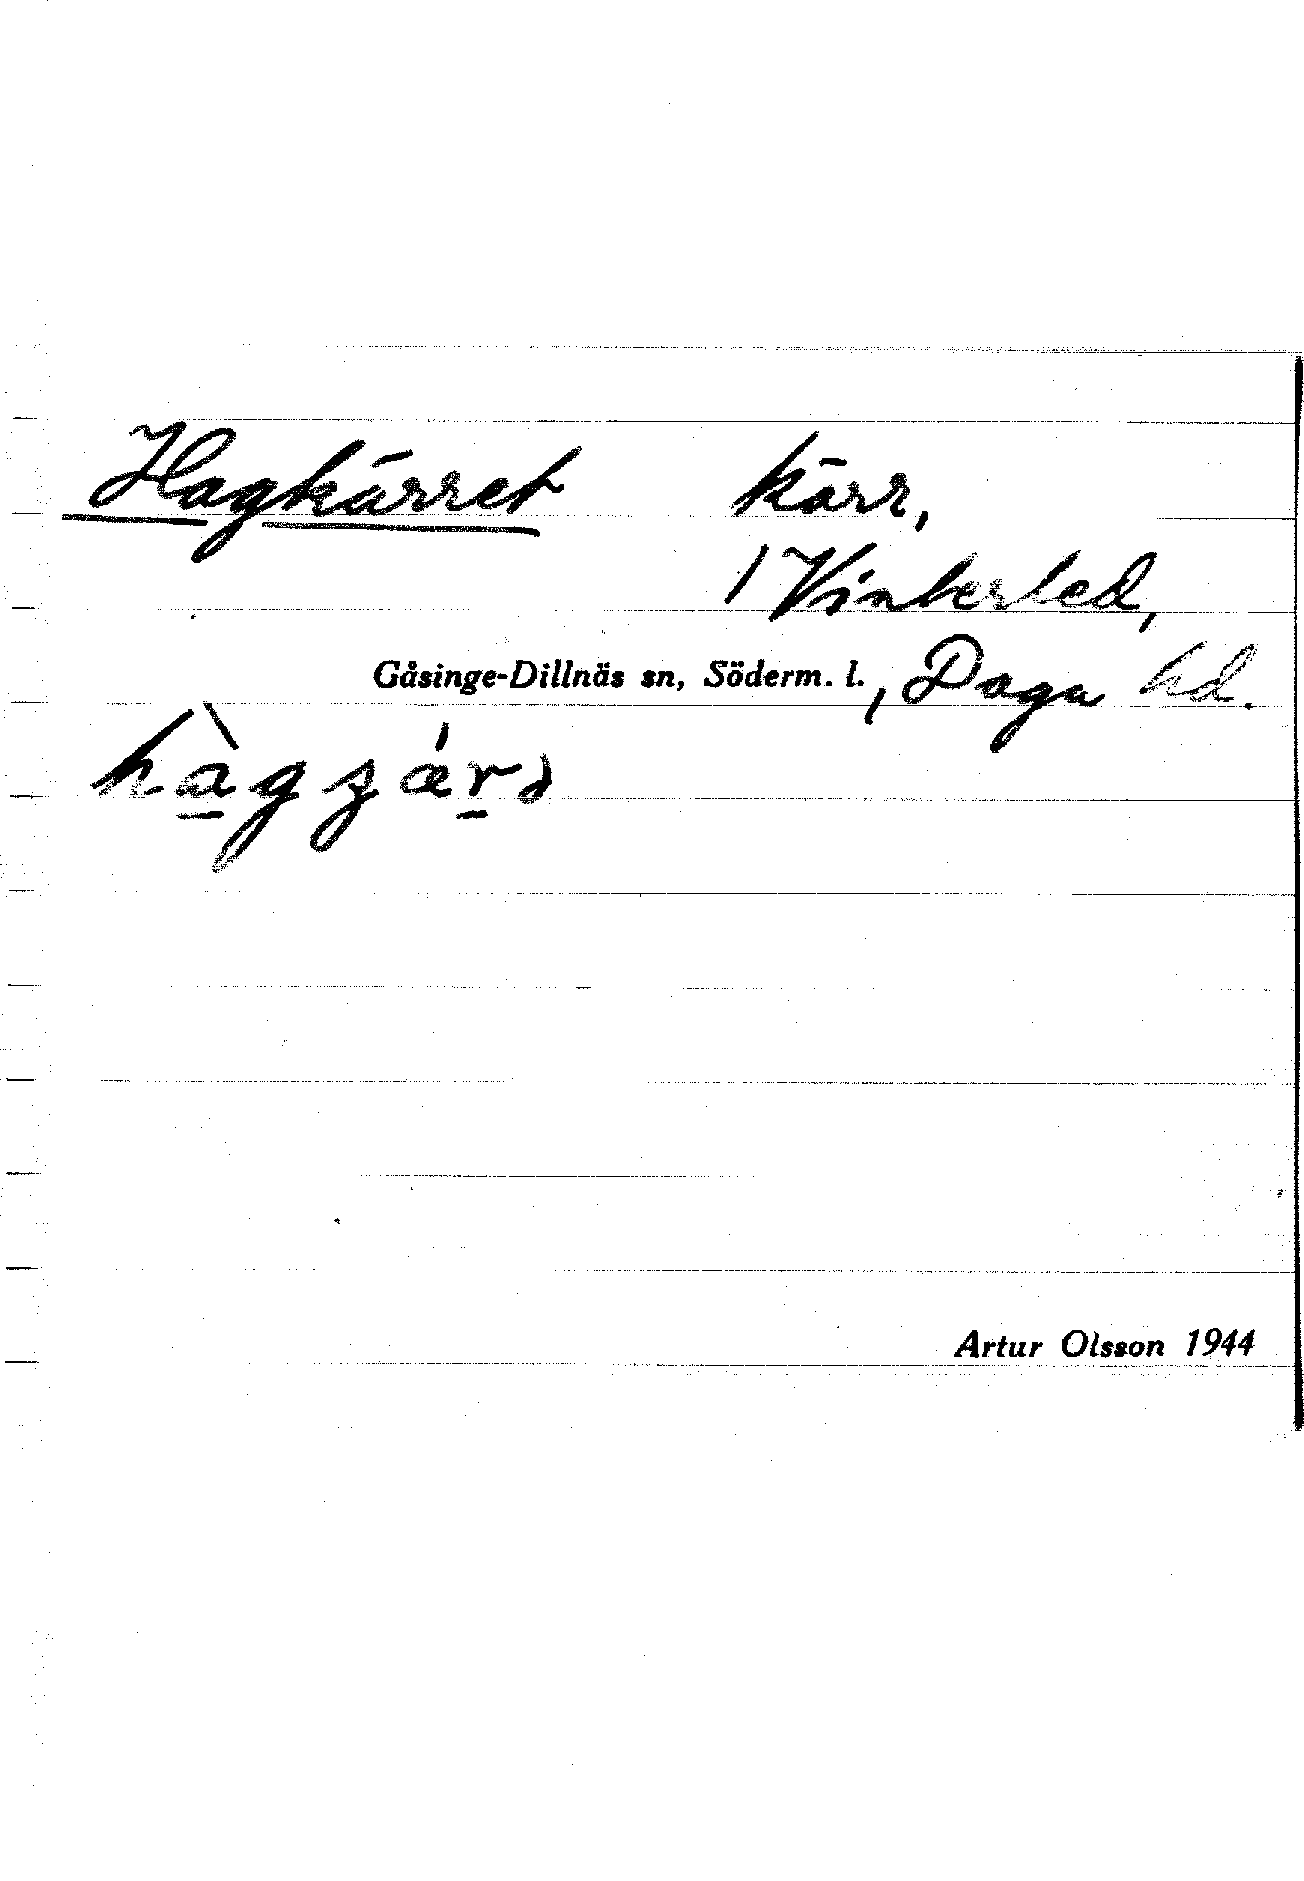 Hagkärret kärr,
1 Vinterled,
Gåsinge-Dillnäs sn, Söderm. l., Daga hd.
Artur Olsson 1944